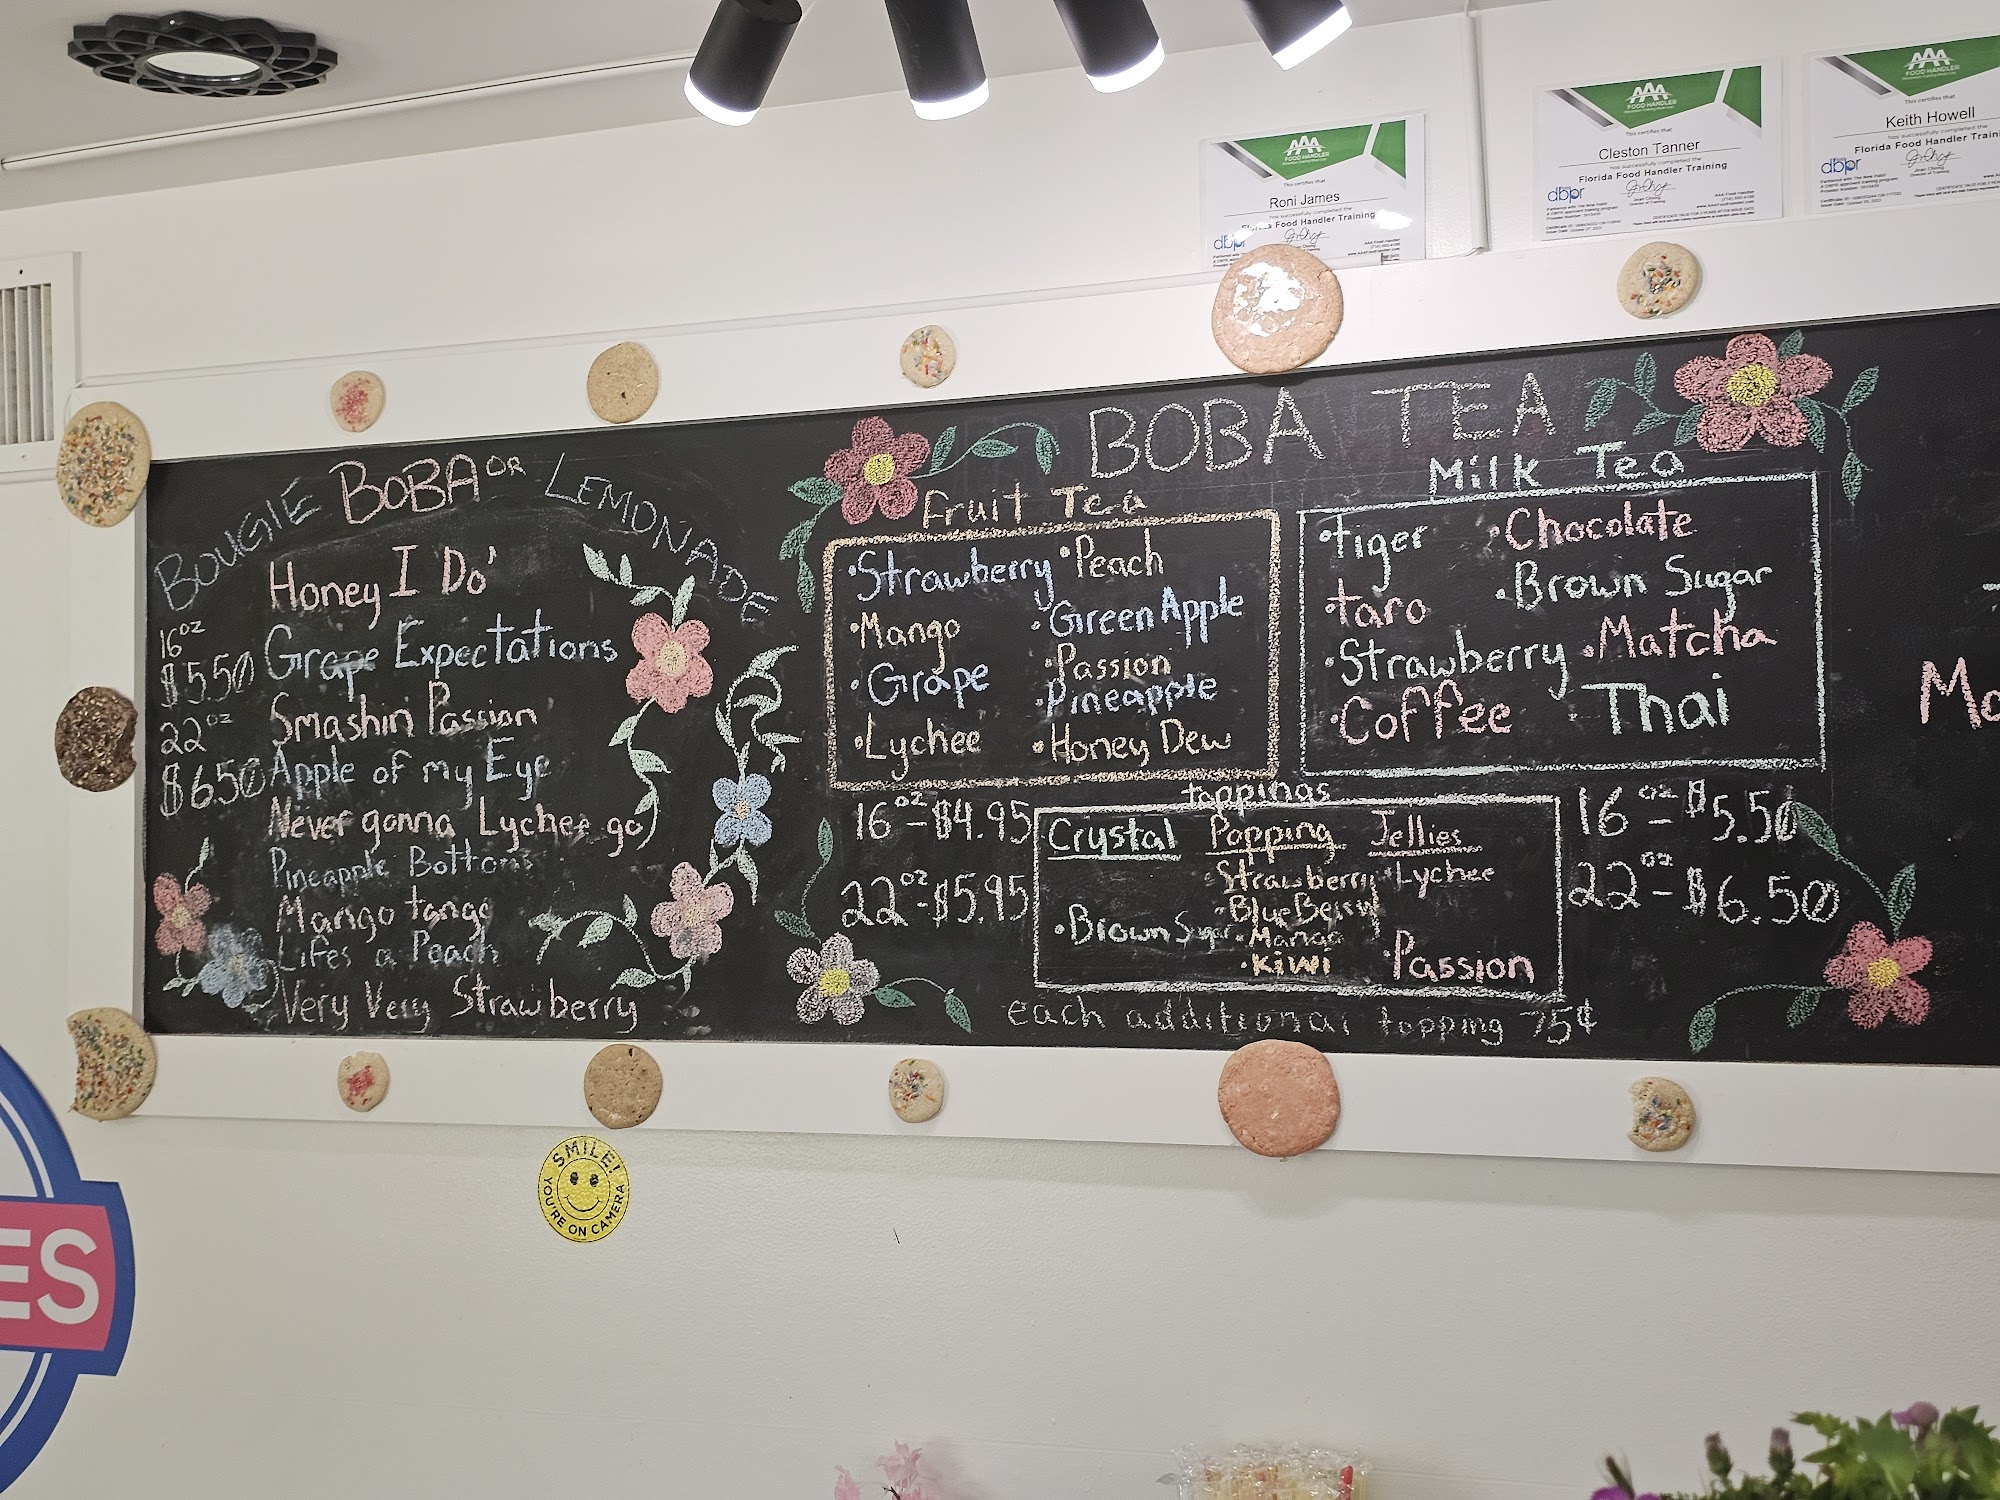 AAA
FOOD HANDLER
This certifies that
Roni James
has successfully completed the
Florida Food Handler Training
dbpr
AAA
FOOD HANDLER
This certifies that
Cleston Tanner
has successfully completed the
Florida Food Handler Training
dbpr
AAA
FOOD HANDLER
This certifies that
Keith Howell
has successfully completed the
Florida Food Handler Traini
dbpr
BOUGIE BOBA OR LEMONADE
16oz
$5.50
22oz
$6.50
Honey I Do'
Grape Expectations
Smashin' Passion
Apple of my Eye
Never gonna Lychee go
Pineapple Bottoms
Mango tango
Lifes a Peach
Very Very Strawberry
BOBA TEA
Fruit Tea
•Strawberry •Peach
•Mango •Green Apple
•Grape •Passion
•Pineapple
•Lychee •Honey Dew
16oz-$4.95
22oz-$5.95
Milk Tea
•Tiger •Chocolate
•Taro •Brown Sugar
•Strawberry •Matcha
•Coffee •Thai
16oz-$5.50
22oz-$6.50
toppings
Crystal Popping Jellies
•Strawberry •Lychee
•BlueBerry
•Brown Sugar •Mango
•Kiwi •Passion
each additional topping 75¢
Mo
SMILE!
YOU'RE ON CAMERA
ES